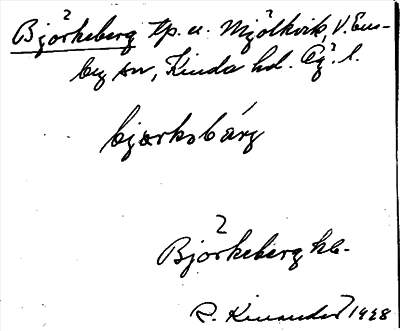 Björkeberg tp. u. Mjölkvik, V. Ens-
by sn, Kinda hd. Ög. l.
bjærksbárg
Björkeberg hb.
R. Kinander 1928